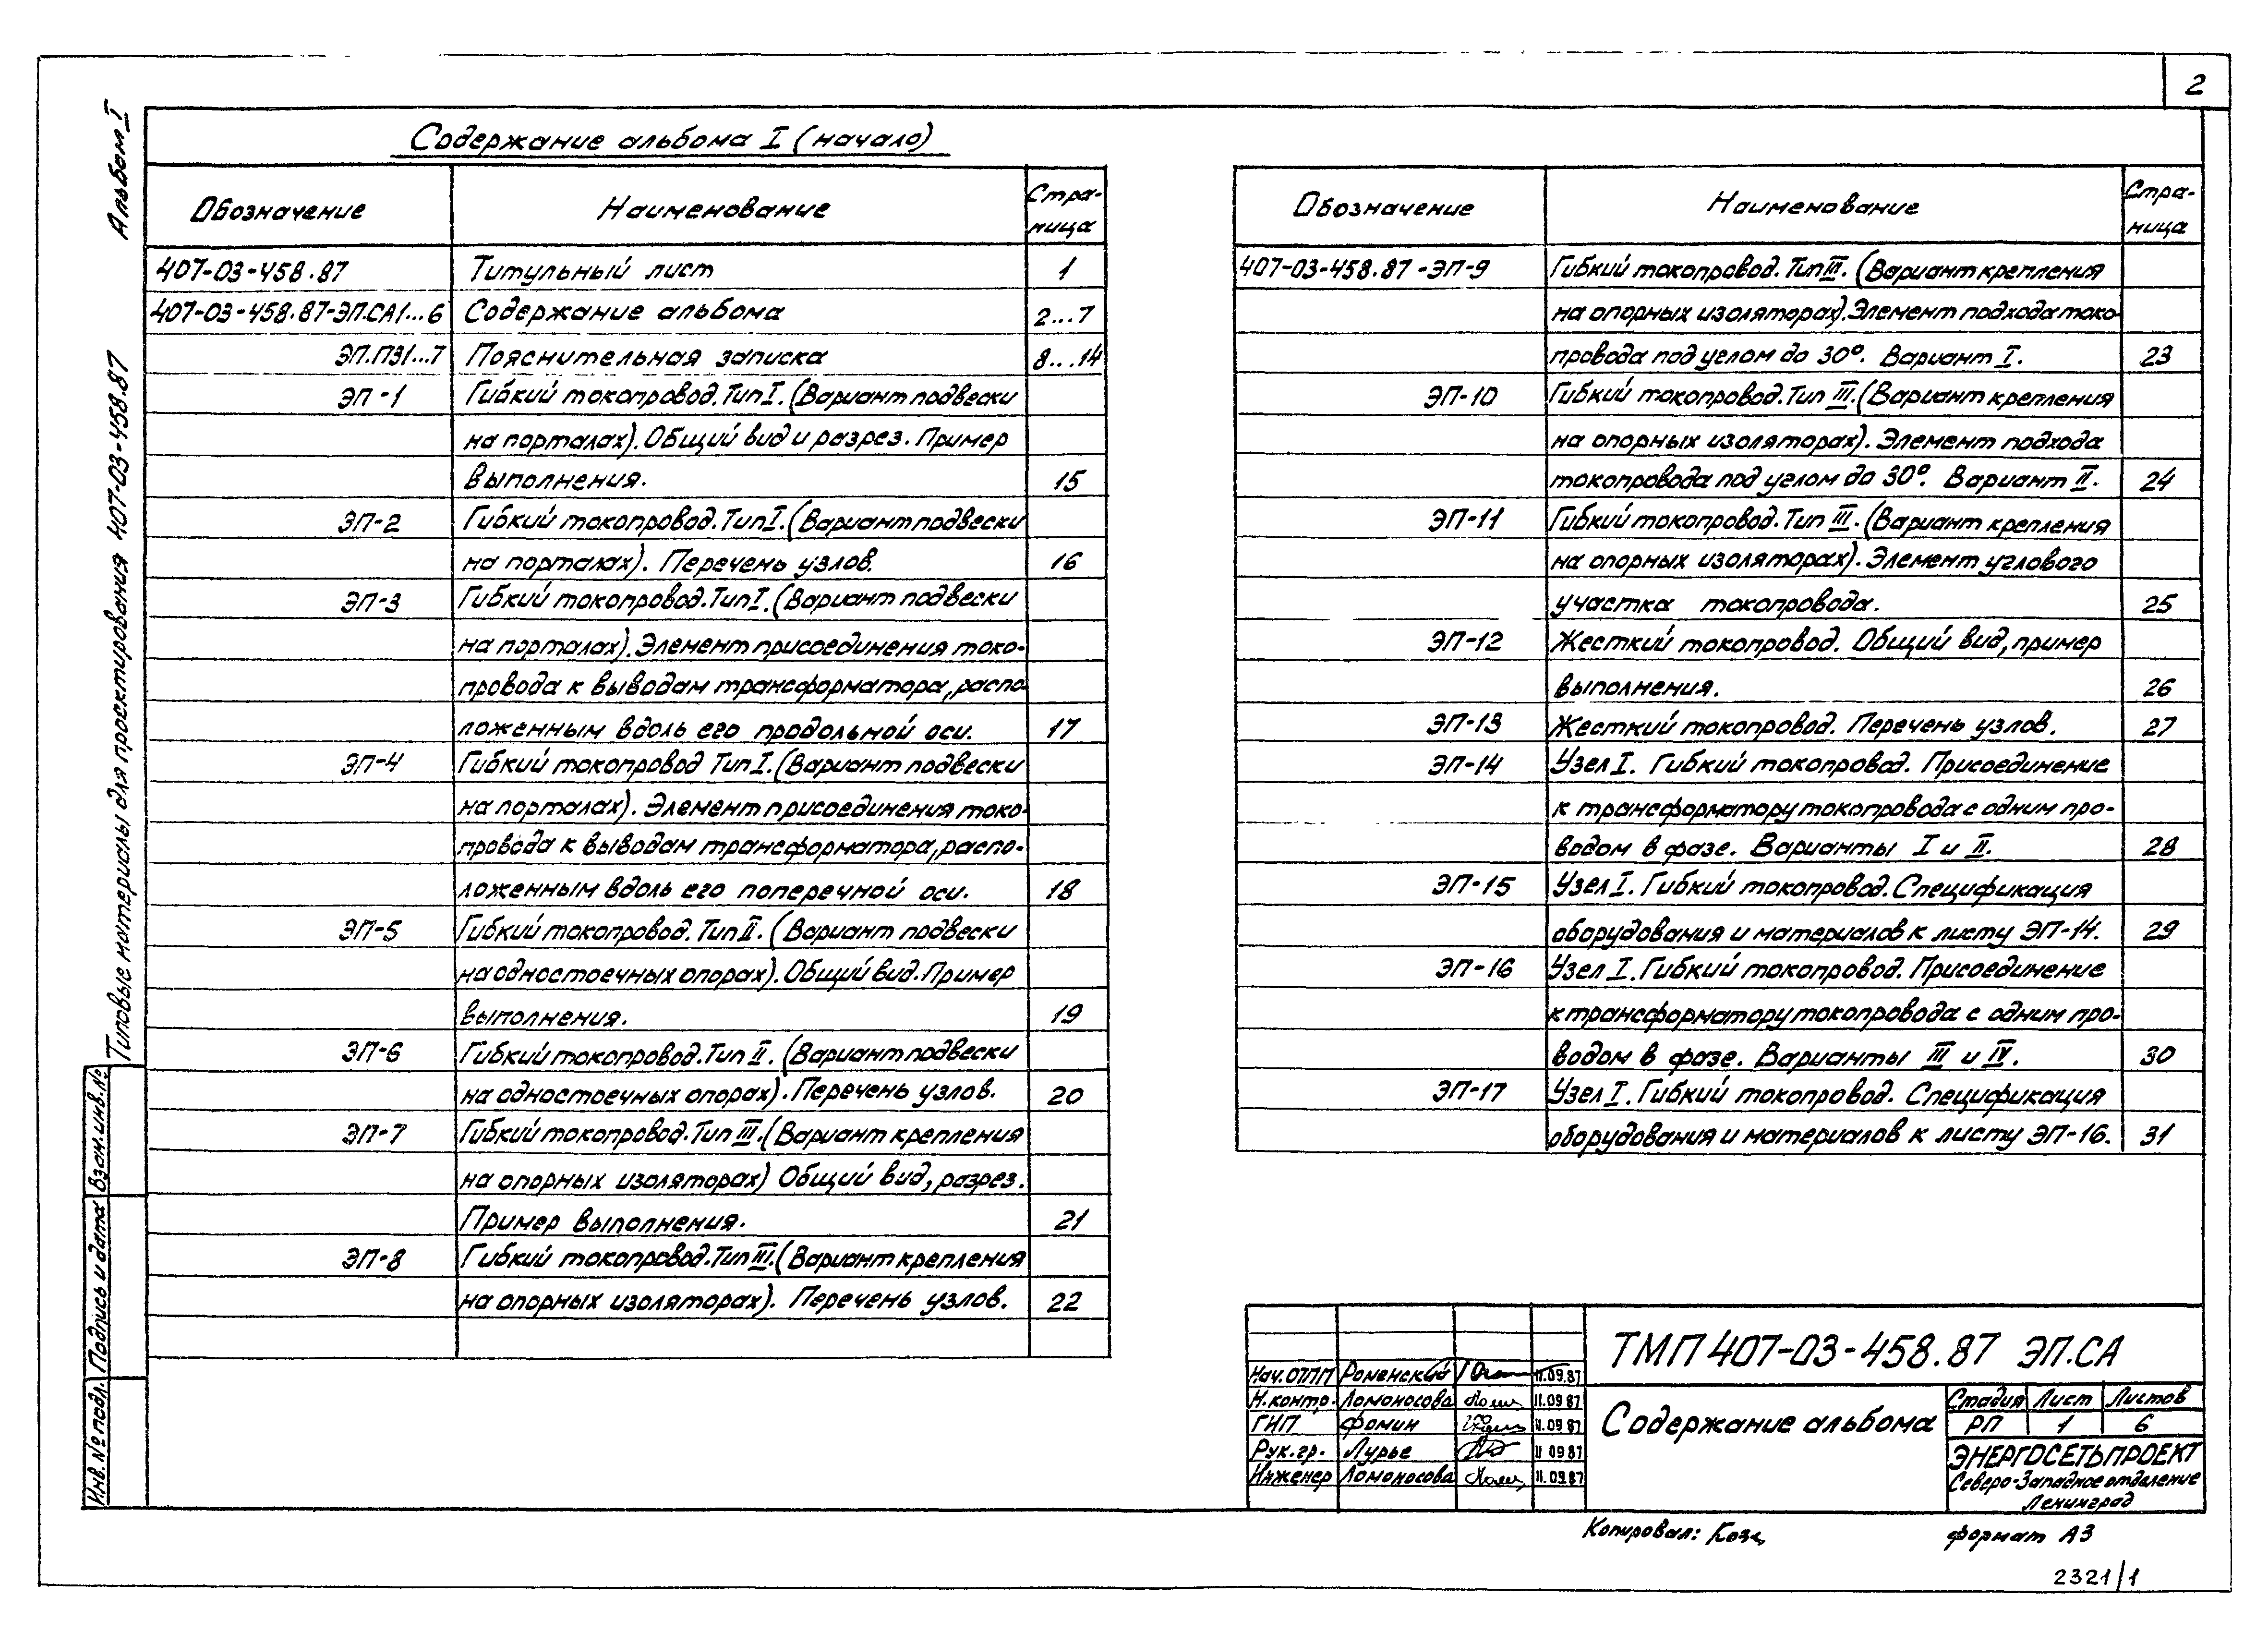 2
Альбом I
Типовые материалы для проектирования 407-03-458.87
Содержание альбома I (начало)
Обозначение Наименование Стра-
ница
407-03-458.87 Титульный лист 1
407-03-458.87-ЭП.СА1...6 Содержание альбома 2...7
ЭП.ПЗ1...7 Пояснительная записка 8...14
ЭП-1 Гибкий токопровод. Тип I. (Вариант подвески
на порталах). Общий вид и разрез. Пример
выполнения. 15
ЭП-2 Гибкий токопровод. Тип I. (Вариант подвески
на порталах). Перечень узлов. 16
ЭП-3 Гибкий токопровод. Тип I. (Вариант подвески
на порталах). Элемент присоединения токо-
провода к выводам трансформатора, распо-
ложенным вдоль его продольной оси. 17
ЭП-4 Гибкий токопровод Тип I. (Вариант подвески
на порталах). Элемент присоединения токо-
провода к выводам трансформатора, распо-
ложенным вдоль его поперечной оси. 18
ЭП-5 Гибкий токопровод. Тип II. (Вариант подвески
на одностоечных опорах). Общий вид. Пример
выполнения. 19
ЭП-6 Гибкий токопровод. Тип II. (Вариант подвески
на одностоечных опорах). Перечень узлов. 20
ЭП-7 Гибкий токопровод. Тип III. (Вариант крепления
на опорных изоляторах) Общий вид, разрез.
Пример выполнения. 21
ЭП-8 Гибкий токопровод. Тип III. (Вариант крепления
на опорных изоляторах). Перечень узлов. 22
Обозначение Наименование Стра-
ница
407-03-458.87-ЭП-9 Гибкий токопровод. Тип III. (Вариант крепления
на опорных изоляторах). Элемент подхода токо-
провода под углом до 30°. Вариант I. 23
ЭП-10 Гибкий токопровод. Тип III. (Вариант крепления
на опорных изоляторах). Элемент подхода
токопровода под углом до 30°. Вариант II. 24
ЭП-11 Гибкий токопровод. Тип III. (Вариант крепления
на опорных изоляторах). Элемент углового
участка токопровода. 25
ЭП-12 Жесткий токопровод. Общий вид, пример
выполнения. 26
ЭП-13 Жесткий токопровод. Перечень узлов. 27
ЭП-14 Узел I. Гибкий токопровод. Присоединение
к трансформатору токопровода с одним про-
водом в фазе. Варианты I и II. 28
ЭП-15 Узел I. Гибкий токопровод. Спецификация
оборудования и материалов к листу ЭП-14. 29
ЭП-16 Узел I. Гибкий токопровод. Присоединение
к трансформатору токопровода с одним про-
водом в фазе. Варианты III и IV. 30
ЭП-17 Узел I. Гибкий токопровод. Спецификация
оборудования и материалов к листу ЭП-16. 31
Взам.инв.№
Подпись и дата
Инв.№ подл.
ТМП 407-03-458.87 ЭП.СА
Нач.ОТПП Роменский 11.09.87
Н.контр. Ломоносова 11.09 87
ГИП Фомин 11.09 87
Рук.гр. Лурье 11 09 87
Инженер Ломоносова 11.09.87
Содержание альбома
Стадия Лист Листов
РП 1 6
ЭНЕРГОСЕТЬПРОЕКТ
Северо-Западное отделение
Ленинград
Копировал: формат А3
2321/1